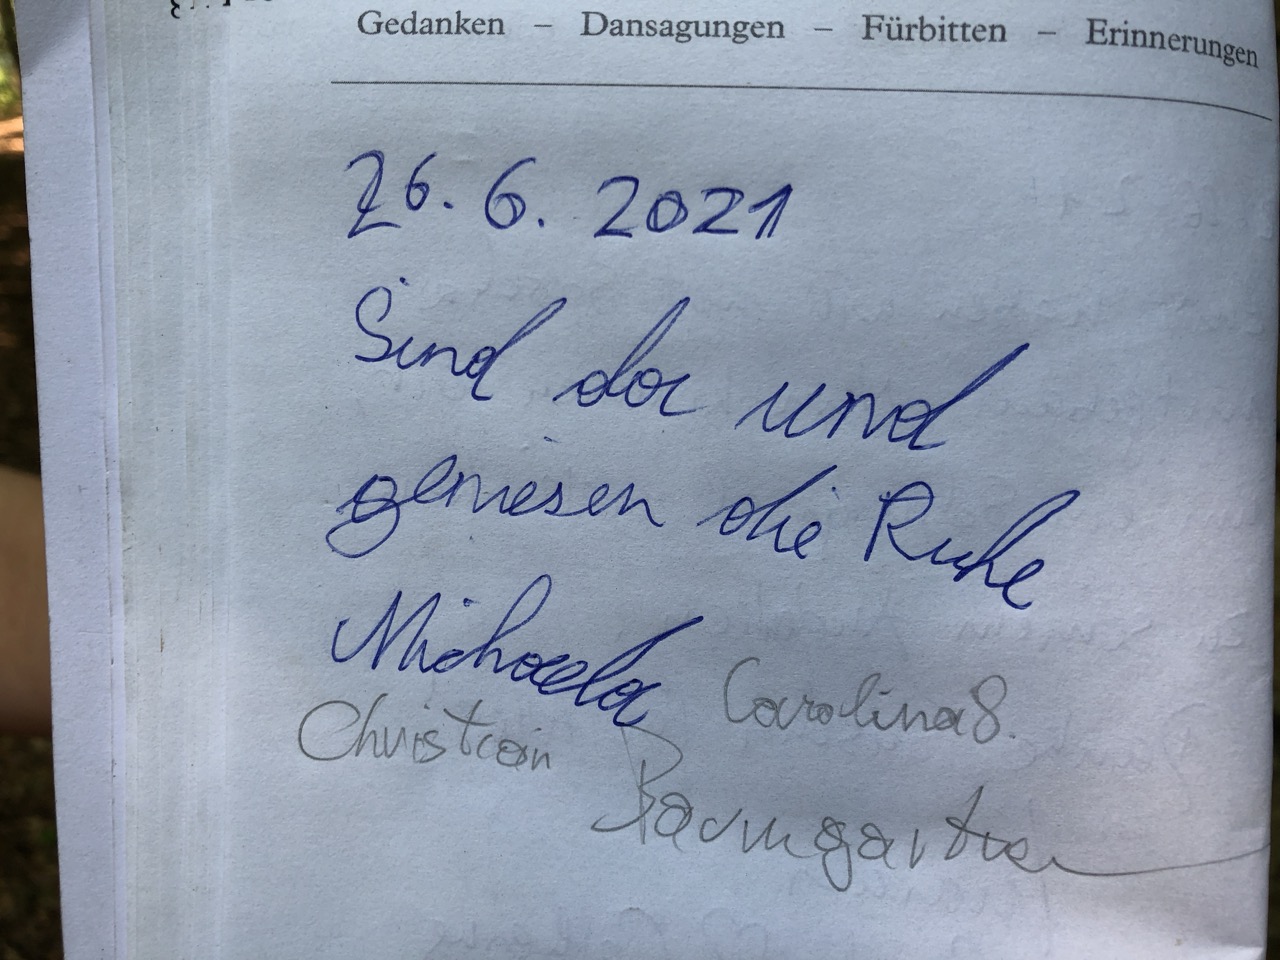 Gedanken – Dansagungen – Fürbitten – Erinnerungen
26. 6. 2021
Sind da und
geniesen die Ruhe
Michaela Carolina S.
Christian
Baumgartner